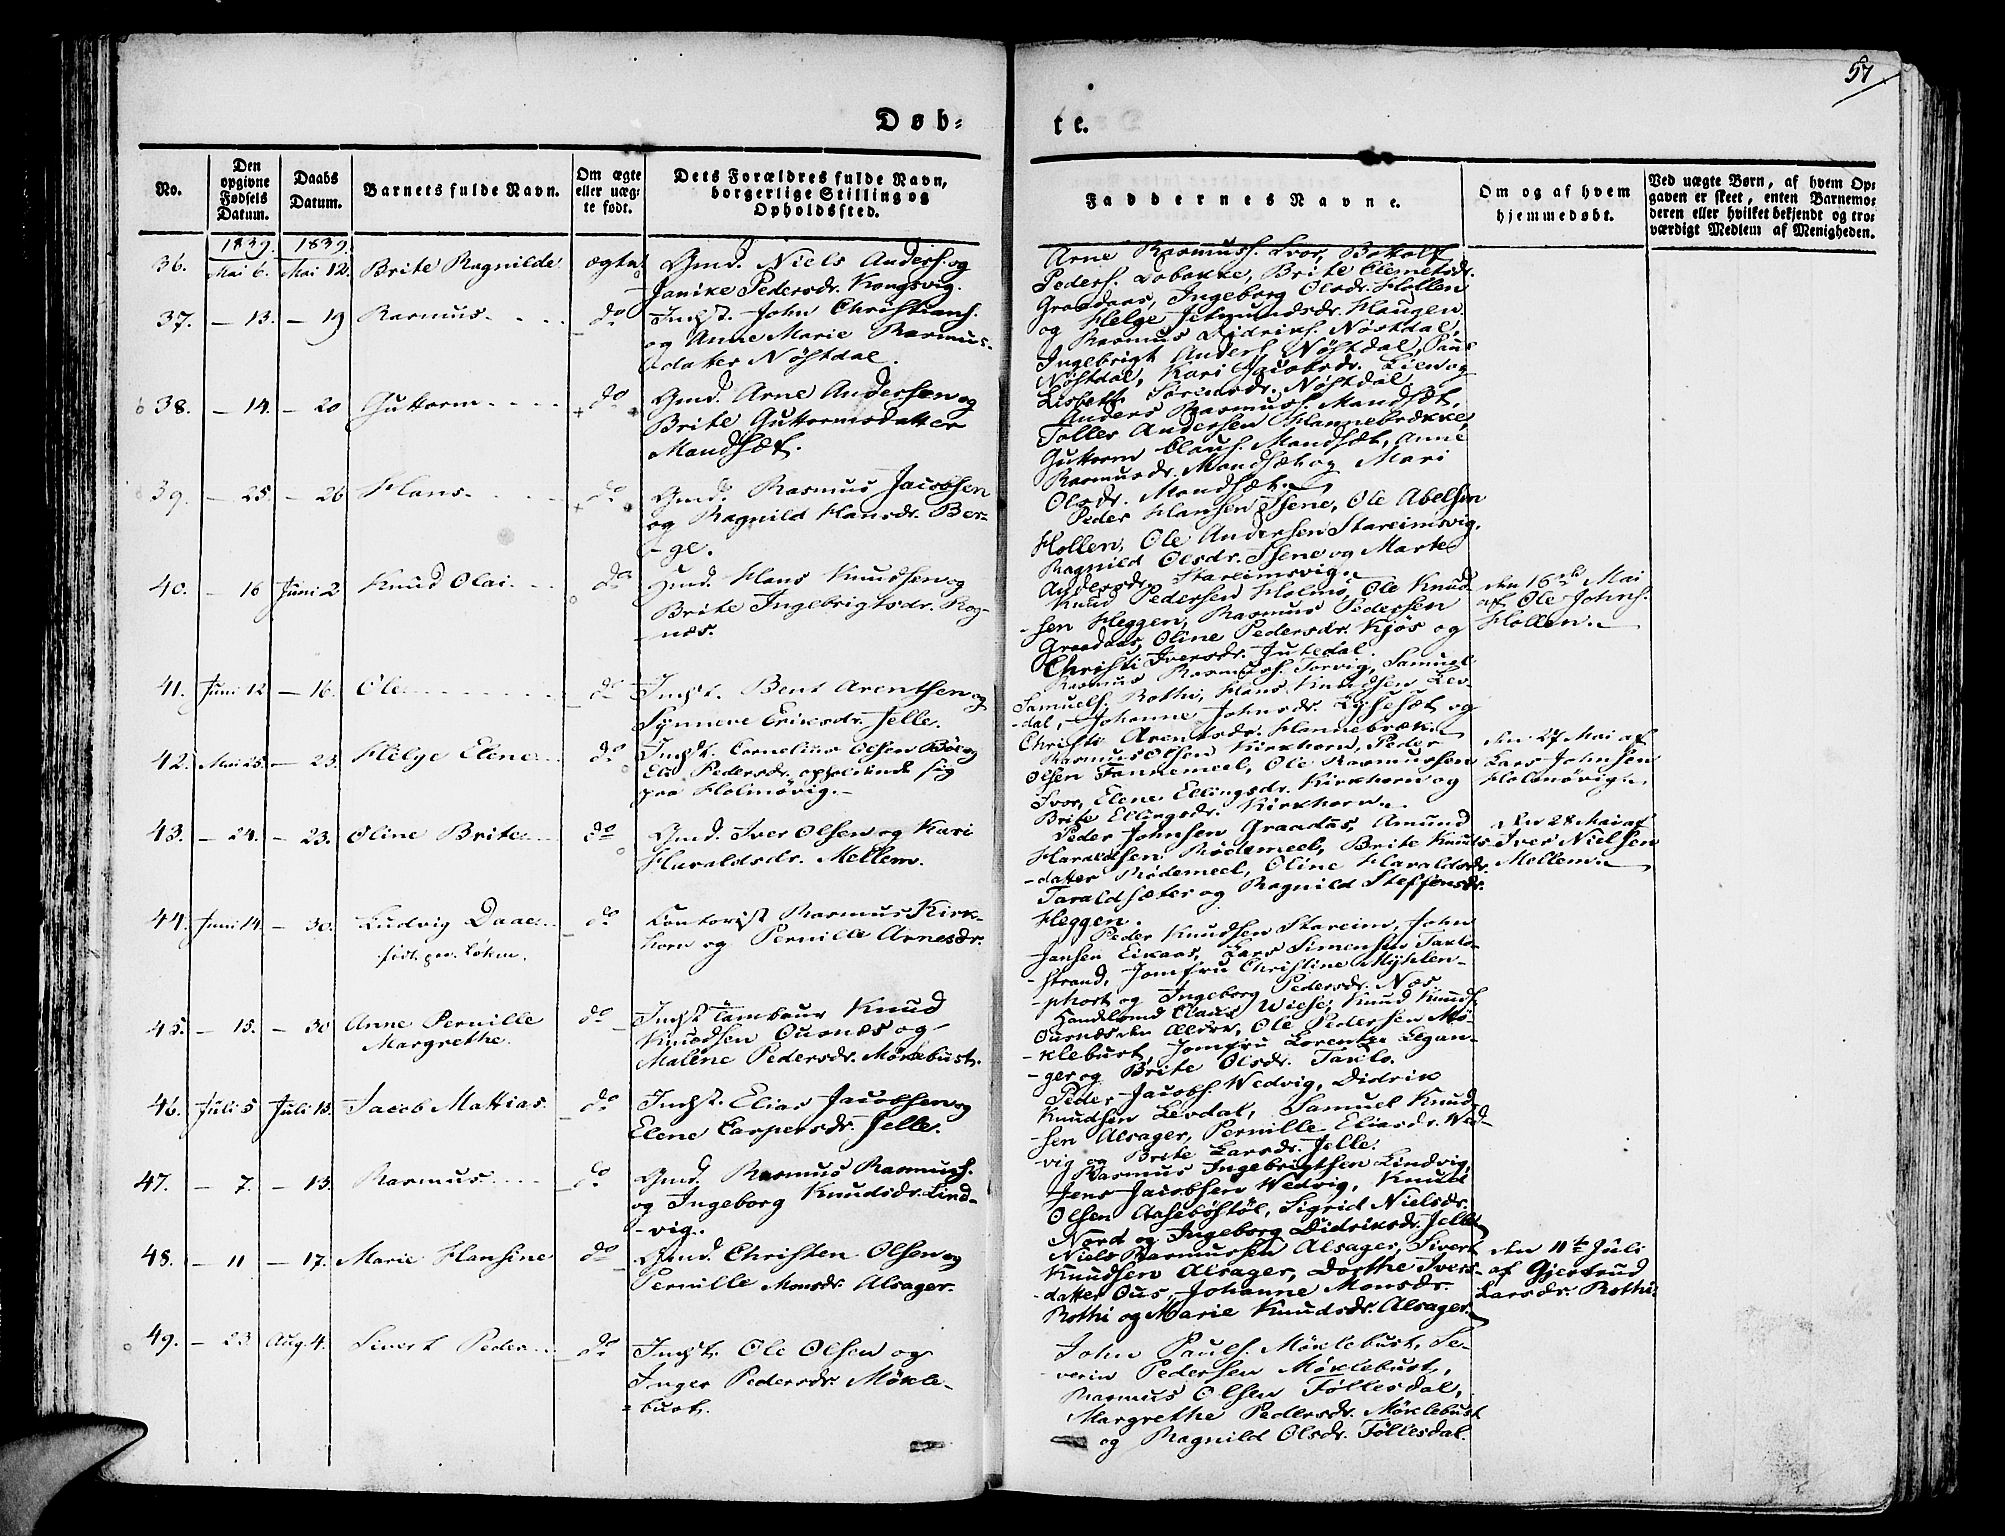 57
Døb-
te.
No.
Den
opgivne
Fødsels
Datum.
Daabs
Datum.
Barnets fulde Navn.
Om ægte
eller uæg-
te født.
Dets Forældres fulde Navn,
borgerlige Stilling og
Opholdssted.
Faddernes Navne.
Om og af hvem
hjemmedøbt.
Ved uægte Børn, af hvem Op-
gaven er skeet, enten Barnemo-
deren eller hvilket bekjendt og tro-
værdigt Medlem af Menigheden.
1839. 1839.
36. Mai 6. Mai 12. Brite Ragnilde ægte Gmd. Niels Anders. og
Janike Pedersdr. Kongsvig.
Arne Rasmuss. Svor, Botolf
Peders. Lobakke, Brite Clemetsdr.
Graadaas, Ingeborg Olsdr. Hollen
og Helge Jetmundsdr. Haugen.
37. – 13. – 19 Rasmus. do Indst. John Christians.
og Anne Marie Rasmus-
datter Nøstdal.
Rasmus Didriks. Nøstdal,
Ingebrigt Anders. Nøstdal, Paus
Nøstdal, Kari Jacobsdr. Lien og
Lisbeth Sørensdr. Nøstdal
38. – 14. – 20 Guttorm do Gmd. Arne Andersen og
Brite Guttormsdatter
Mandsæt.
Anders Rasmus. Mandsæt,
Tolles Andersen Hannebrække,
Guttorm Claus. Mandsæt, Anne
Rasmusdr. Mandsæt og Mari
Olsdr. Mandsæt.
39. – 25. – 26 Hans. do Gmd. Rasmus Jacobsen
og Ragnild Hansdr. Ber-
-ge.
Peder Hansen Isene, Ole Abelsen
Hollen, Ole Andersen Stareimsvig,
Ragnild Olsdr. Isene og Marte
Andersdr. Stareimsvig.
40. – 16 Juni 2 Knud Olai do Gmd. Hans Knudsen og
Brite Ingebrigtsdr. Rog-
-næs.
Knud Pedersen Holme, Ole Knud-
-sen Heggen, Rasmus Pedersen
Graadaas, Oline Pedersdr. Kjøs og
Christi Iversdr. Jutedal.
den 16de Mai
af Ole Johns.
Hollen.
41. Juni 12 – 16. Ole do Indst. Bent Arentsen og
Synneve Eriksdr. Jelle.
Rasmus Rasmus. Torvig, Samuel
Samuels. Rothi, Hans Knudsen Lev-
-dal, Johanne Johnsdr. Lysesæt og
Christi Arentsdr. Hannebræk.
42. Mai 25. – 23. Helge Eline do Indst. Cornelius Olsen Böe og
Eli Pedersdr. opholdende sig
paa Holmøvig.
Rasmus Olsen Kirkhorn, Peder
Olsen Tannemeel, Ole Rasmussen
Svor, Elene Ellingsdr. Kirkhorn og
Brite Ellingsdr. Kirkhorn.
den 27 Mai af
Lars Johnsen
Holmøvig.
43. – 24. – 23. Oline Brite do Gmd. Iver Olsen og Kari
Haraldsdr. Mellem.
Peder Johnsen Graadas, Amund
Haraldsen Rødemeel, Brite Knuds-
-datter Rødemeel, Oline Haraldsdr.
Taraldsæter og Ragnild Steffensdr.
Heggen.
den 28 Mai af
Iver Nielsen
Mellem.
44. Juni 14. – 30. Ludvig Daae do Contorist Rasmus Kirk-
horn og Pernille Arnesdr.
Peder Knudsen Stareim, John
Jansen Eikaas, Lars Simensen Taklo-
-strand, Jomfru Christine Myhlen-
-phort og Ingeborg Pedersdr. Næs
45. – 15. – 30 Anne Pernille
Margrethe. do Indst Tambour Knud
Knudsen Ournæs og
Malene Pedersdr. Møklebust.
Handelsmd Claus Wiese, Knud Knuds.
Ournæs den Ældre, Ole Pedersen Mö-
-klebust, Jomfru Lorentze Legan-
-ger og Brite Olsdr. Taklo.
46. Juli 5 Juli 13. Jacob Mattias. do Indst. Elias Jacobsen og
Elene Caspersdr. Jelle.
Peder Jacobs. Wedvig, Didrik
Knudsen Levdal, Samuel Knud-
-sen Alsager, Pernille Eliasdr. Wed-
vig og Brite Larsdr. Jelle.
47. – 7. – 13. Rasmus do Gmd. Rasmus Rasmuss.
og Ingeborg Knudsdr. Lind-
-vig.
Rasmus Ingebrigtsen Lindvig,
Jens Jacobsen Wedvig, Knud
Olsen Aasebøstøl, Sigrid Nielsdr.
Nord og Ingeborg Didriksdr. Jelle
48. – 11 – 17. Marie Hansine do Gmd. Christen Olsen og
Pernille Monsdr. Alsager.
Niels Rasmussen Alsager, Sivert
Knudsen Alsager, Dorthe Ivers-
-datter Ous, Johanne Monsdr.
Rothi og Marie Knudsdr. Alsager.
den 11te Juli
af Gjertrud
Larsdr. Rothi.
49. – 23 Aug. 4. Sivert Peder do Indst. Ole Olsen og
Inger Pedersdr. Møkle-
-bust.
John Pauls. Møklebust, Se-
verin Pedersen Møklebust,
Rasmus Olsen Föllesdal,
Margrethe Pedersdr. Møklebust
og Ragnild Olsdr. Föllesdal.